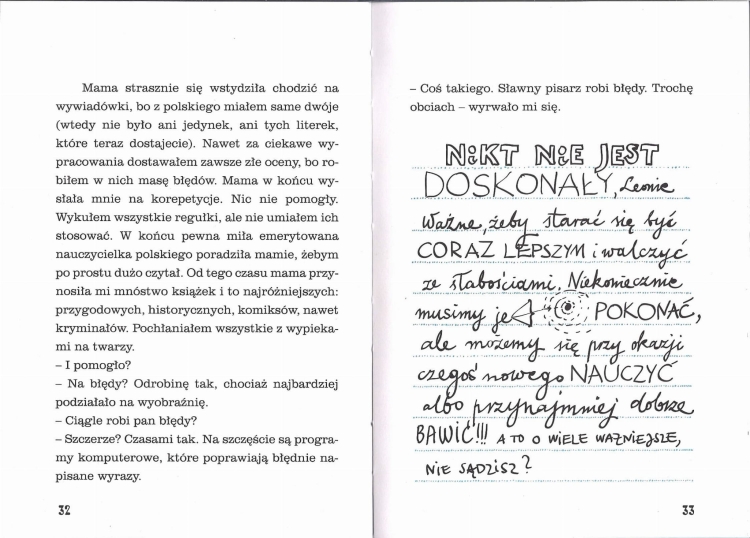 Mama strasznie się wstydziła chodzić na
wywiadówki, bo z polskiego miałem same dwóje
(wtedy nie było ani jedynek, ani tych literek,
które teraz dostajecie). Nawet za ciekawe wy-
pracowania dostawałem zawsze złe oceny, bo ro-
biłem w nich masę błędów. Mama w końcu wy-
słała mnie na korepetycje. Nic nie pomogły.
Wykułem wszystkie regułki, ale nie umiałem ich
stosować. W końcu pewna miła emerytowana
nauczycielka polskiego poradziła mamie, żebym
po prostu dużo czytał. Od tego czasu mama przy-
nosiła mi mnóstwo książek i to najróżniejszych:
przygodowych, historycznych, komiksów, nawet
kryminałów. Pochłaniałem wszystkie z wypieka-
mi na twarzy.
– I pomogło?
– Na błędy? Odrobinę tak, chociaż najbardziej
podziałało na wyobraźnię.
– Ciągle robi pan błędy?
– Szczerze? Czasami tak. Na szczęście są progra-
my komputerowe, które poprawiają błędnie na-
pisane wyrazy.
32
– Coś takiego. Sławny pisarz robi błędy. Trochę
obciach – wyrwało mi się.
NiKT NiE JEST
DOSKONAŁY, Leonie
Ważne, żeby starać się być
CORAZ LEPSZYM i walczyć
ze słabościami. Niekoniecznie
musimy je POKONAĆ,
ale możemy się przy okazji
czegoś nowego NAUCZYĆ
albo przynajmniej dobrze
BAWIĆ!!! A TO O WIELE WAŻNIEJSZE,
NIE SĄDZISZ?
33